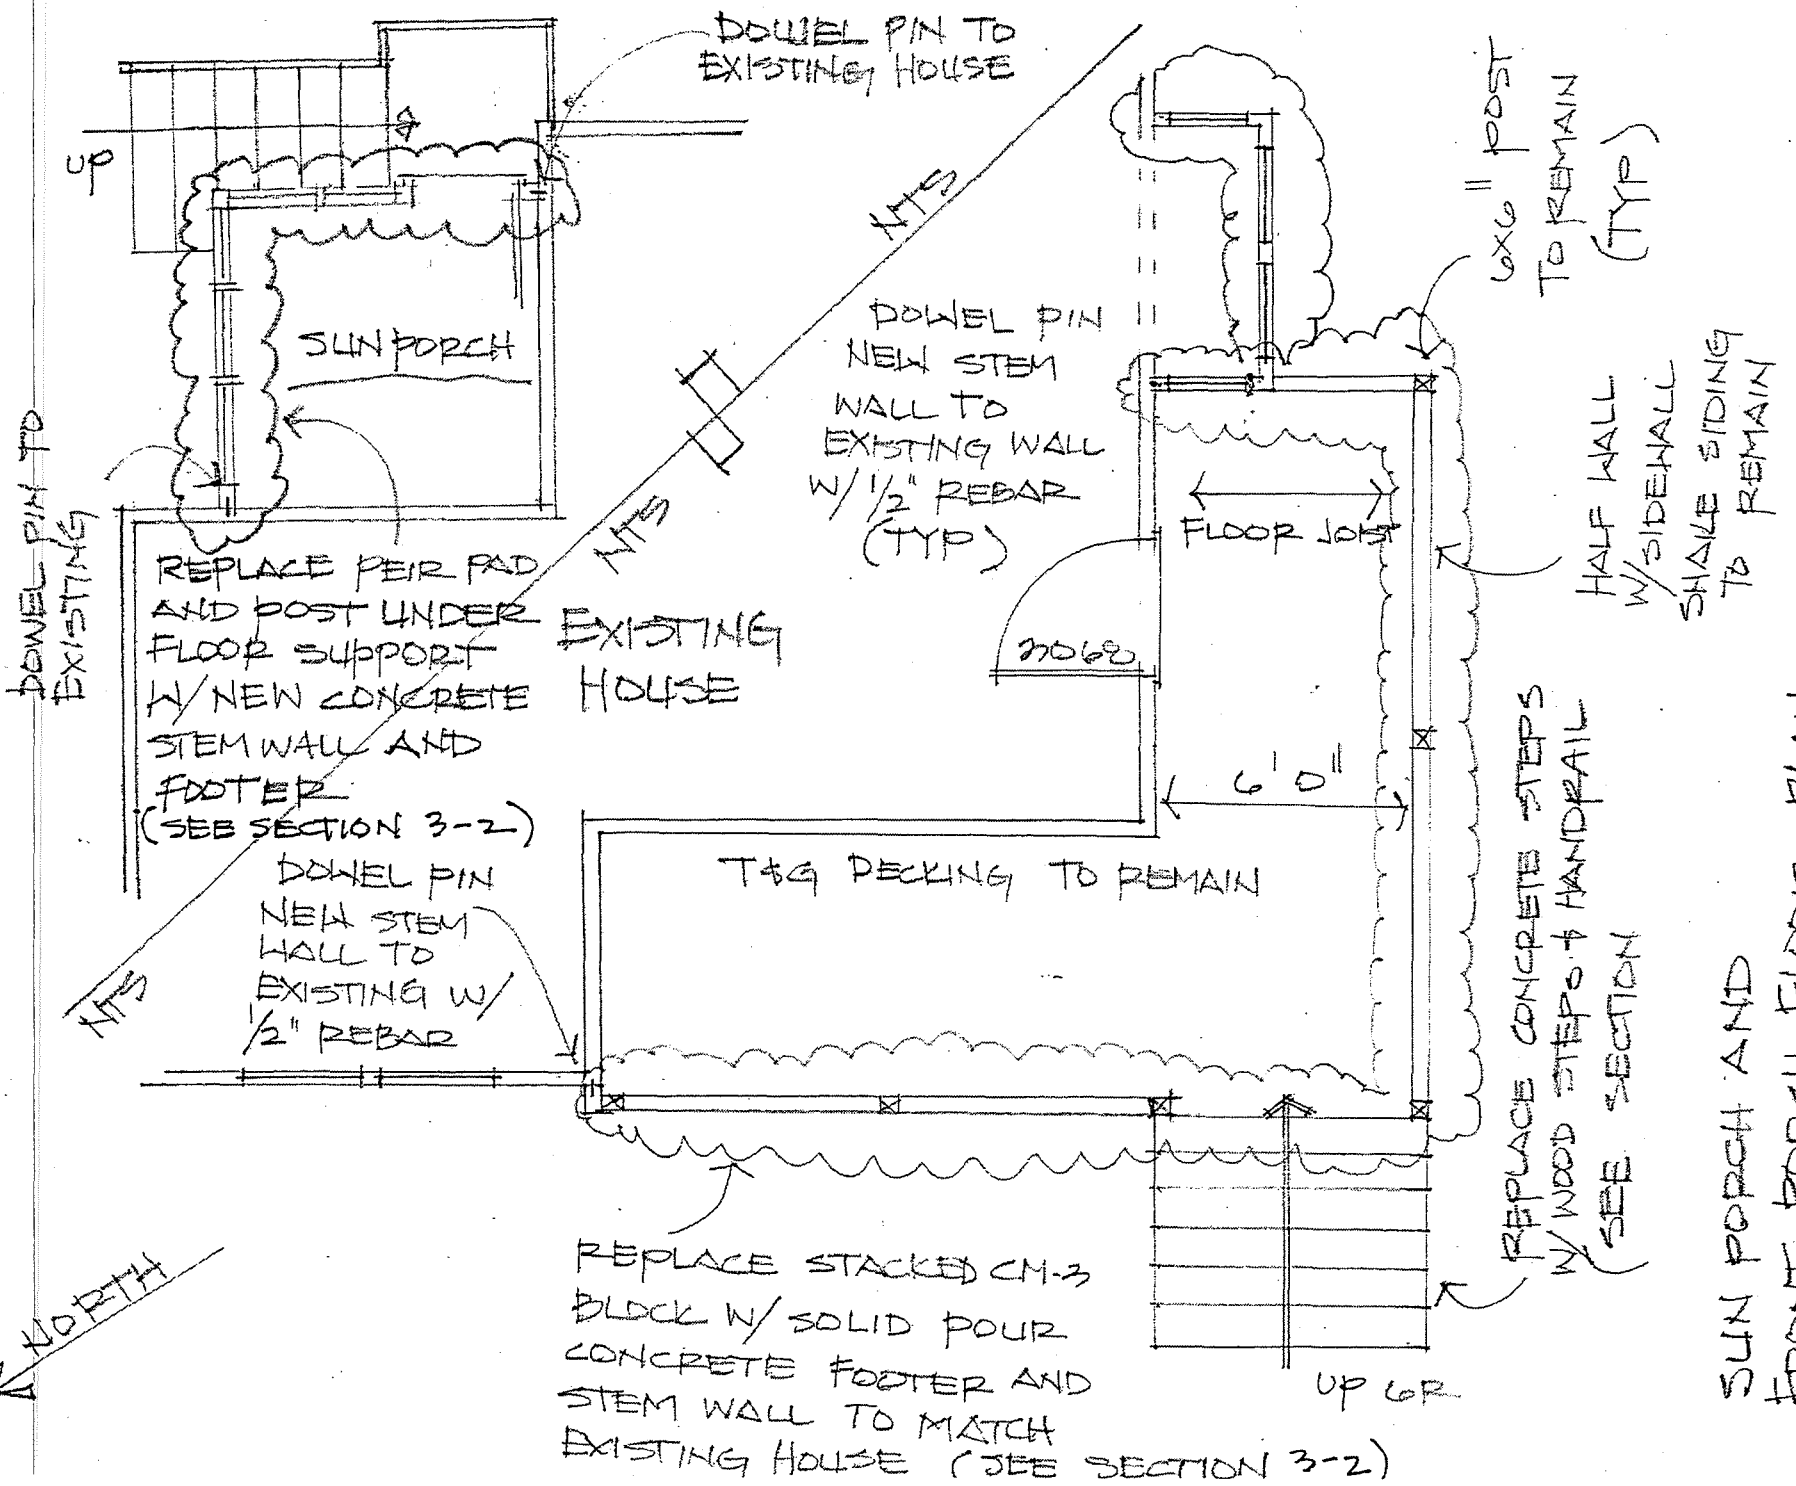 DOWEL PIN TO
EXISTING HOUSE
UP
SUN PORCH
DOWEL PIN TO
EXISTING
REPLACE PEIR PAD
AND POST UNDER
FLOOR SUPPORT
W/ NEW CONCRETE
STEM WALL AND
FOOTER
(SEE SECTION 3-2)
NTS
NTS
NTS
EXISTING
HOUSE
DOWEL PIN
NEW STEM
WALL TO
EXISTING WALL
W/ 1/2" REBAR
(TYP)
6X6" POST
TO REMAIN
(TYP)
FLOOR JOIST
HALF WALL
W/ SIDEWALL
SHAKE SIDING
TO REMAIN
3068
6'0"
T&G DECKING TO REMAIN
DOWEL PIN
NEW STEM
WALL TO
EXISTING W/
1/2" REBAR
REPLACE CONCRETE STEPS
W/ WOOD STEPS & HANDRAIL
(SEE SECTION
REPLACE STACKED CM-3
BLOCK W/ SOLID POUR
CONCRETE FOOTER AND
STEM WALL TO MATCH
EXISTING HOUSE (SEE SECTION 3-2)
UP 6R
NORTH
SUN PORCH AND